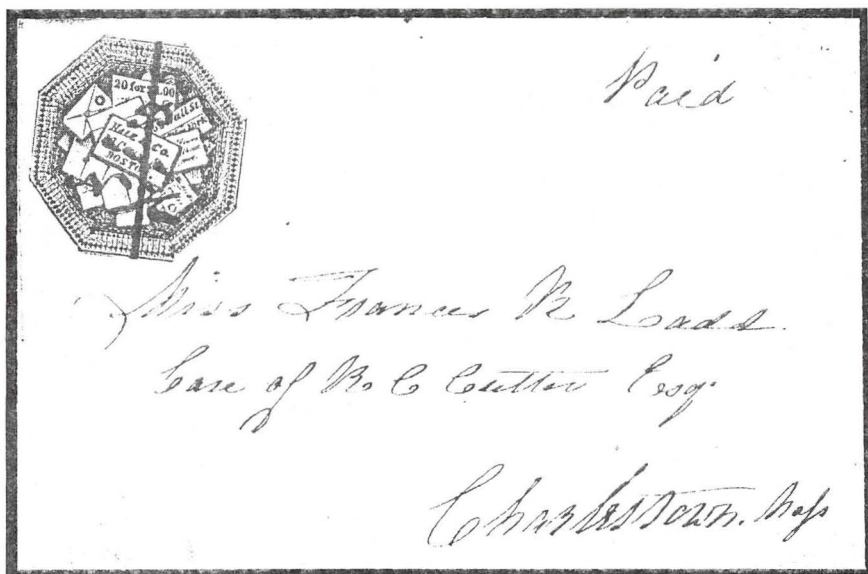 20 for $1.00
Hale & Co.
BOSTON
Paid
Miss Frances R Ladd
Care of R. C Cutter Esqr
Charlestown. Mass